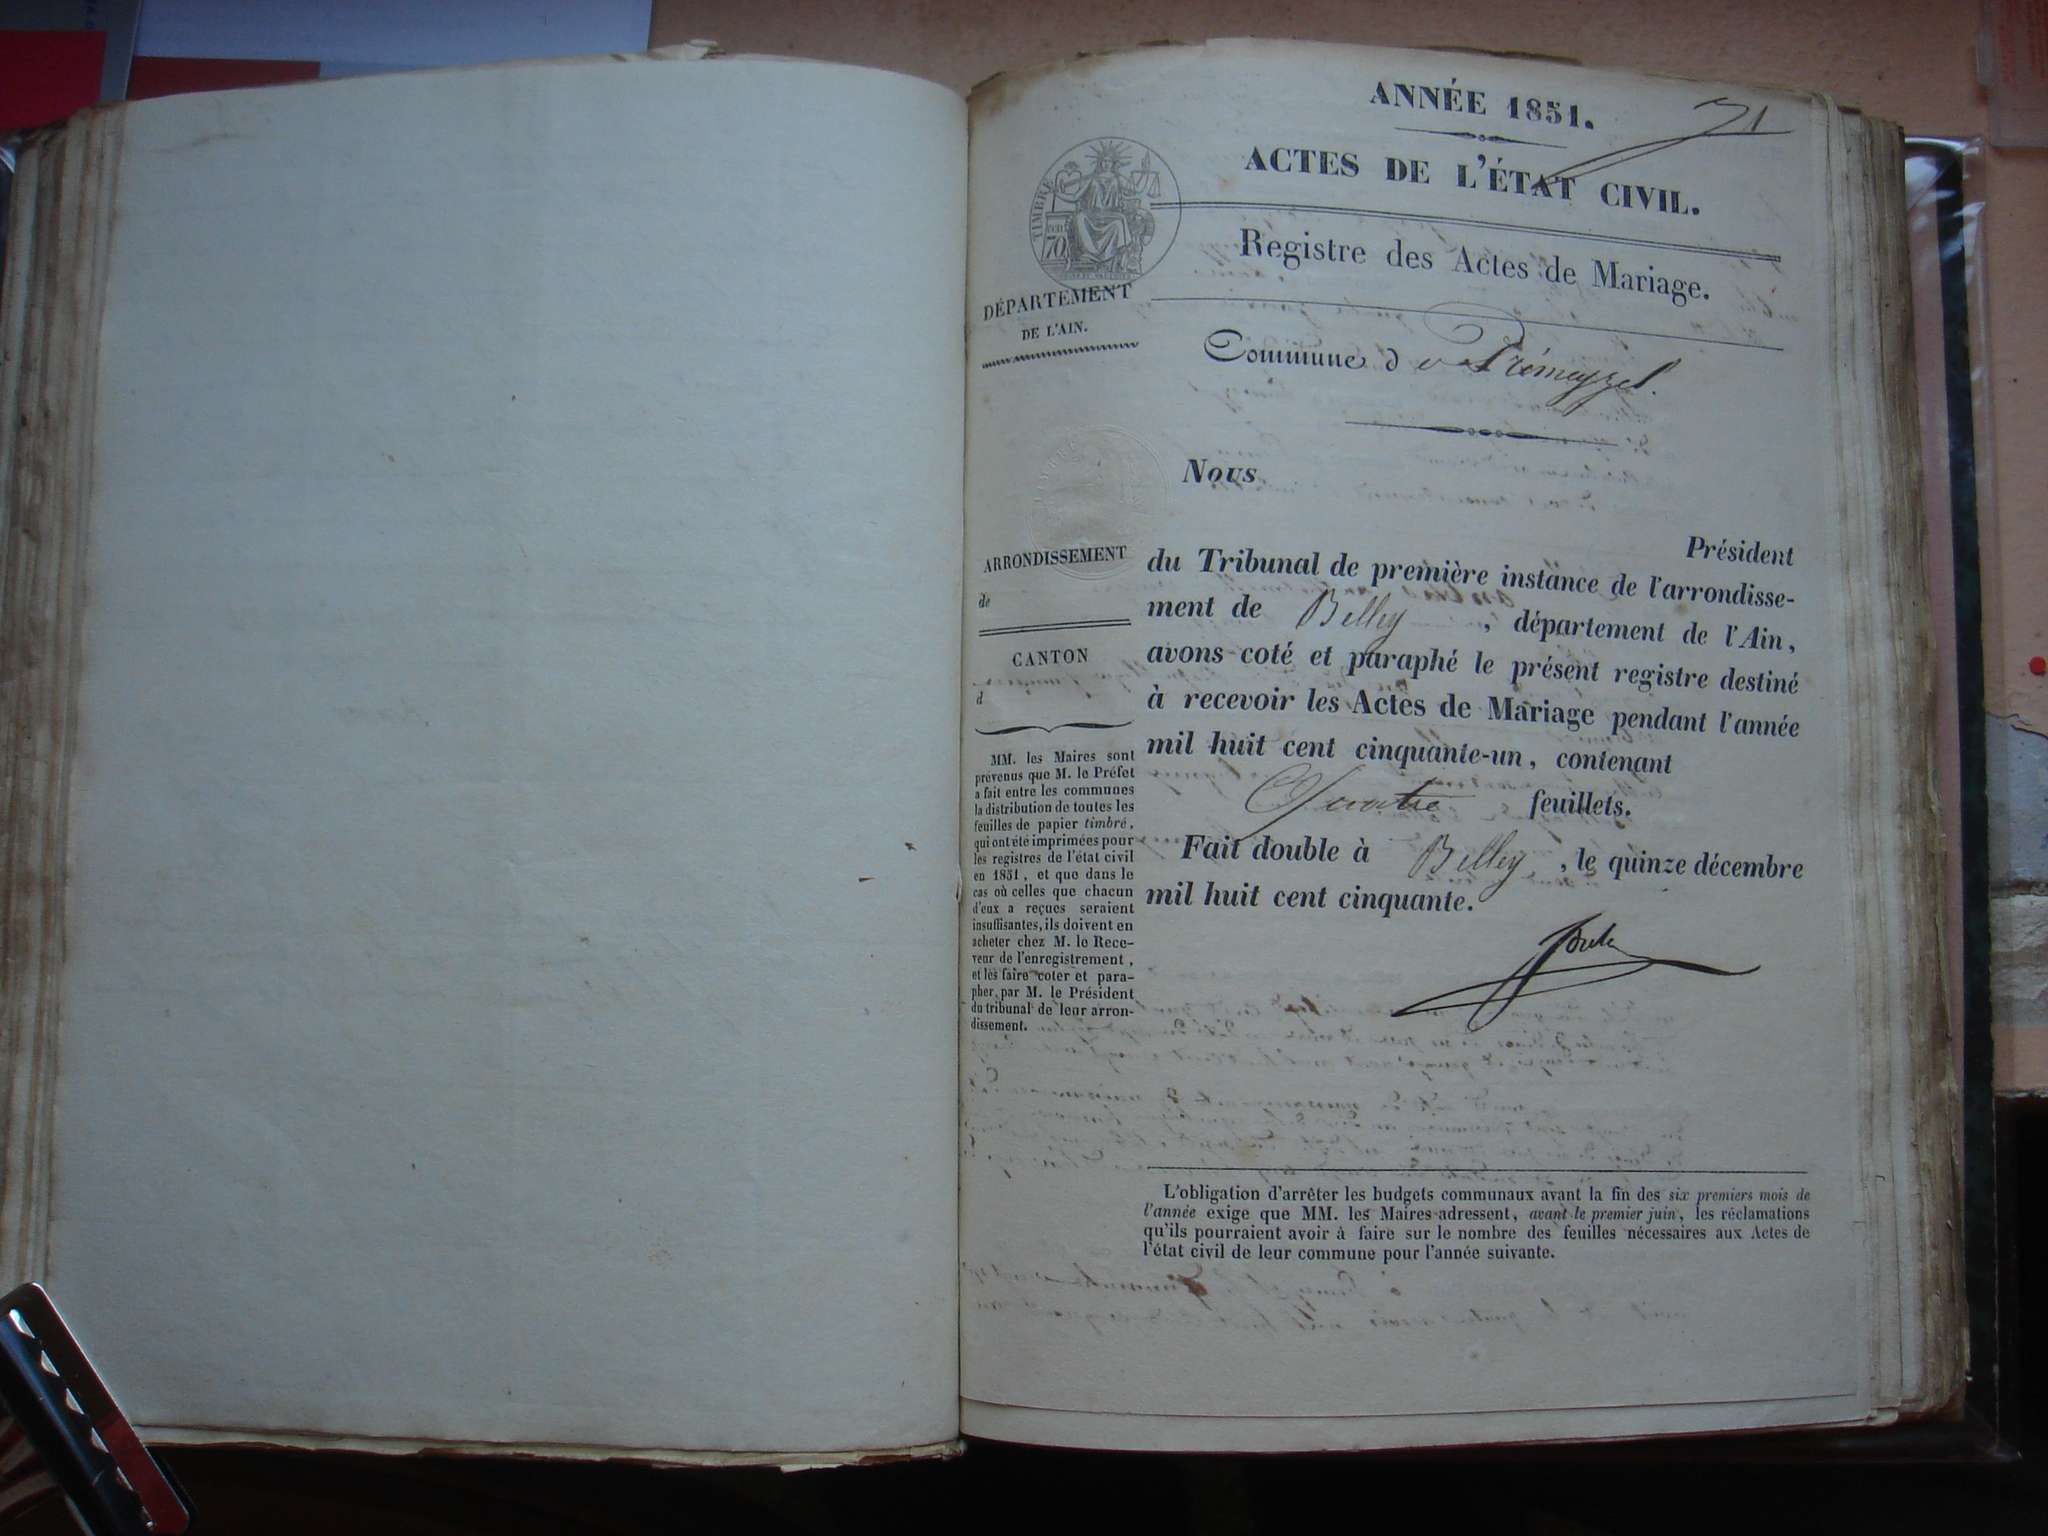 ANNÉE 1851.
ACTES DE L'ÉTAT CIVIL.
TIMBRE
CENT
70
Registre des Actes de Mariage.
DÉPARTEMENT
DE L'AIN.
Commune de Prémeyzel.
Nous
Président
du Tribunal de première instance de l'arrondisse-
ment de Belley, département de l'Ain,
avons coté et paraphé le présent registre destiné
à recevoir les Actes de Mariage pendant l'année
mil huit cent cinquante-un, contenant
Quatre feuillets.
Fait double à Belley, le quinze décembre
mil huit cent cinquante.
ARRONDISSEMENT
de
CANTON
d
MM. les Maires sont
prévenus que M. le Préfet
a fait entre les communes
la distribution de toutes les
feuilles de papier timbré,
qui ont été imprimées pour
les registres de l'état civil
en 1851, et que dans le
cas où celles que chacun
d'eux a reçues seraient
insuffisantes, ils doivent en
acheter chez M. le Rece-
veur de l'enregistrement,
et les faire coter et para-
pher par M. le Président
du tribunal de leur arron-
dissement.
L'obligation d'arrêter les budgets communaux avant la fin des six premiers mois de
l'année exige que MM. les Maires adressent, avant le premier juin, les réclamations
qu'ils pourraient avoir à faire sur le nombre des feuilles nécessaires aux Actes de
l'état civil de leur commune pour l'année suivante.